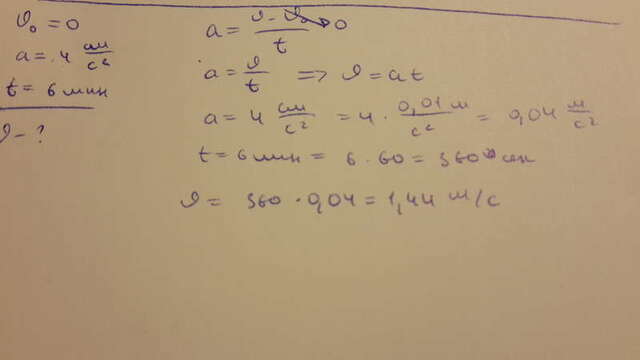 υ₀ = 0
a = 4 см/с²
t = 6 мин
υ - ?
a = (υ - υ₀)/t → 0
a = υ/t => υ = at
a = 4 см/с² = 4 · 0,01 м/с² = 0,04 м/с²
t = 6 мин = 6 · 60 = 360
υ = 360 · 0,04 = 1,44 м/с